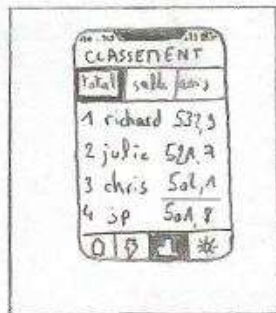 CLASSEMENT
total salle amis
1 richard 532,9
2 julie 521,7
3 chris 502,1
4 jp 501,8